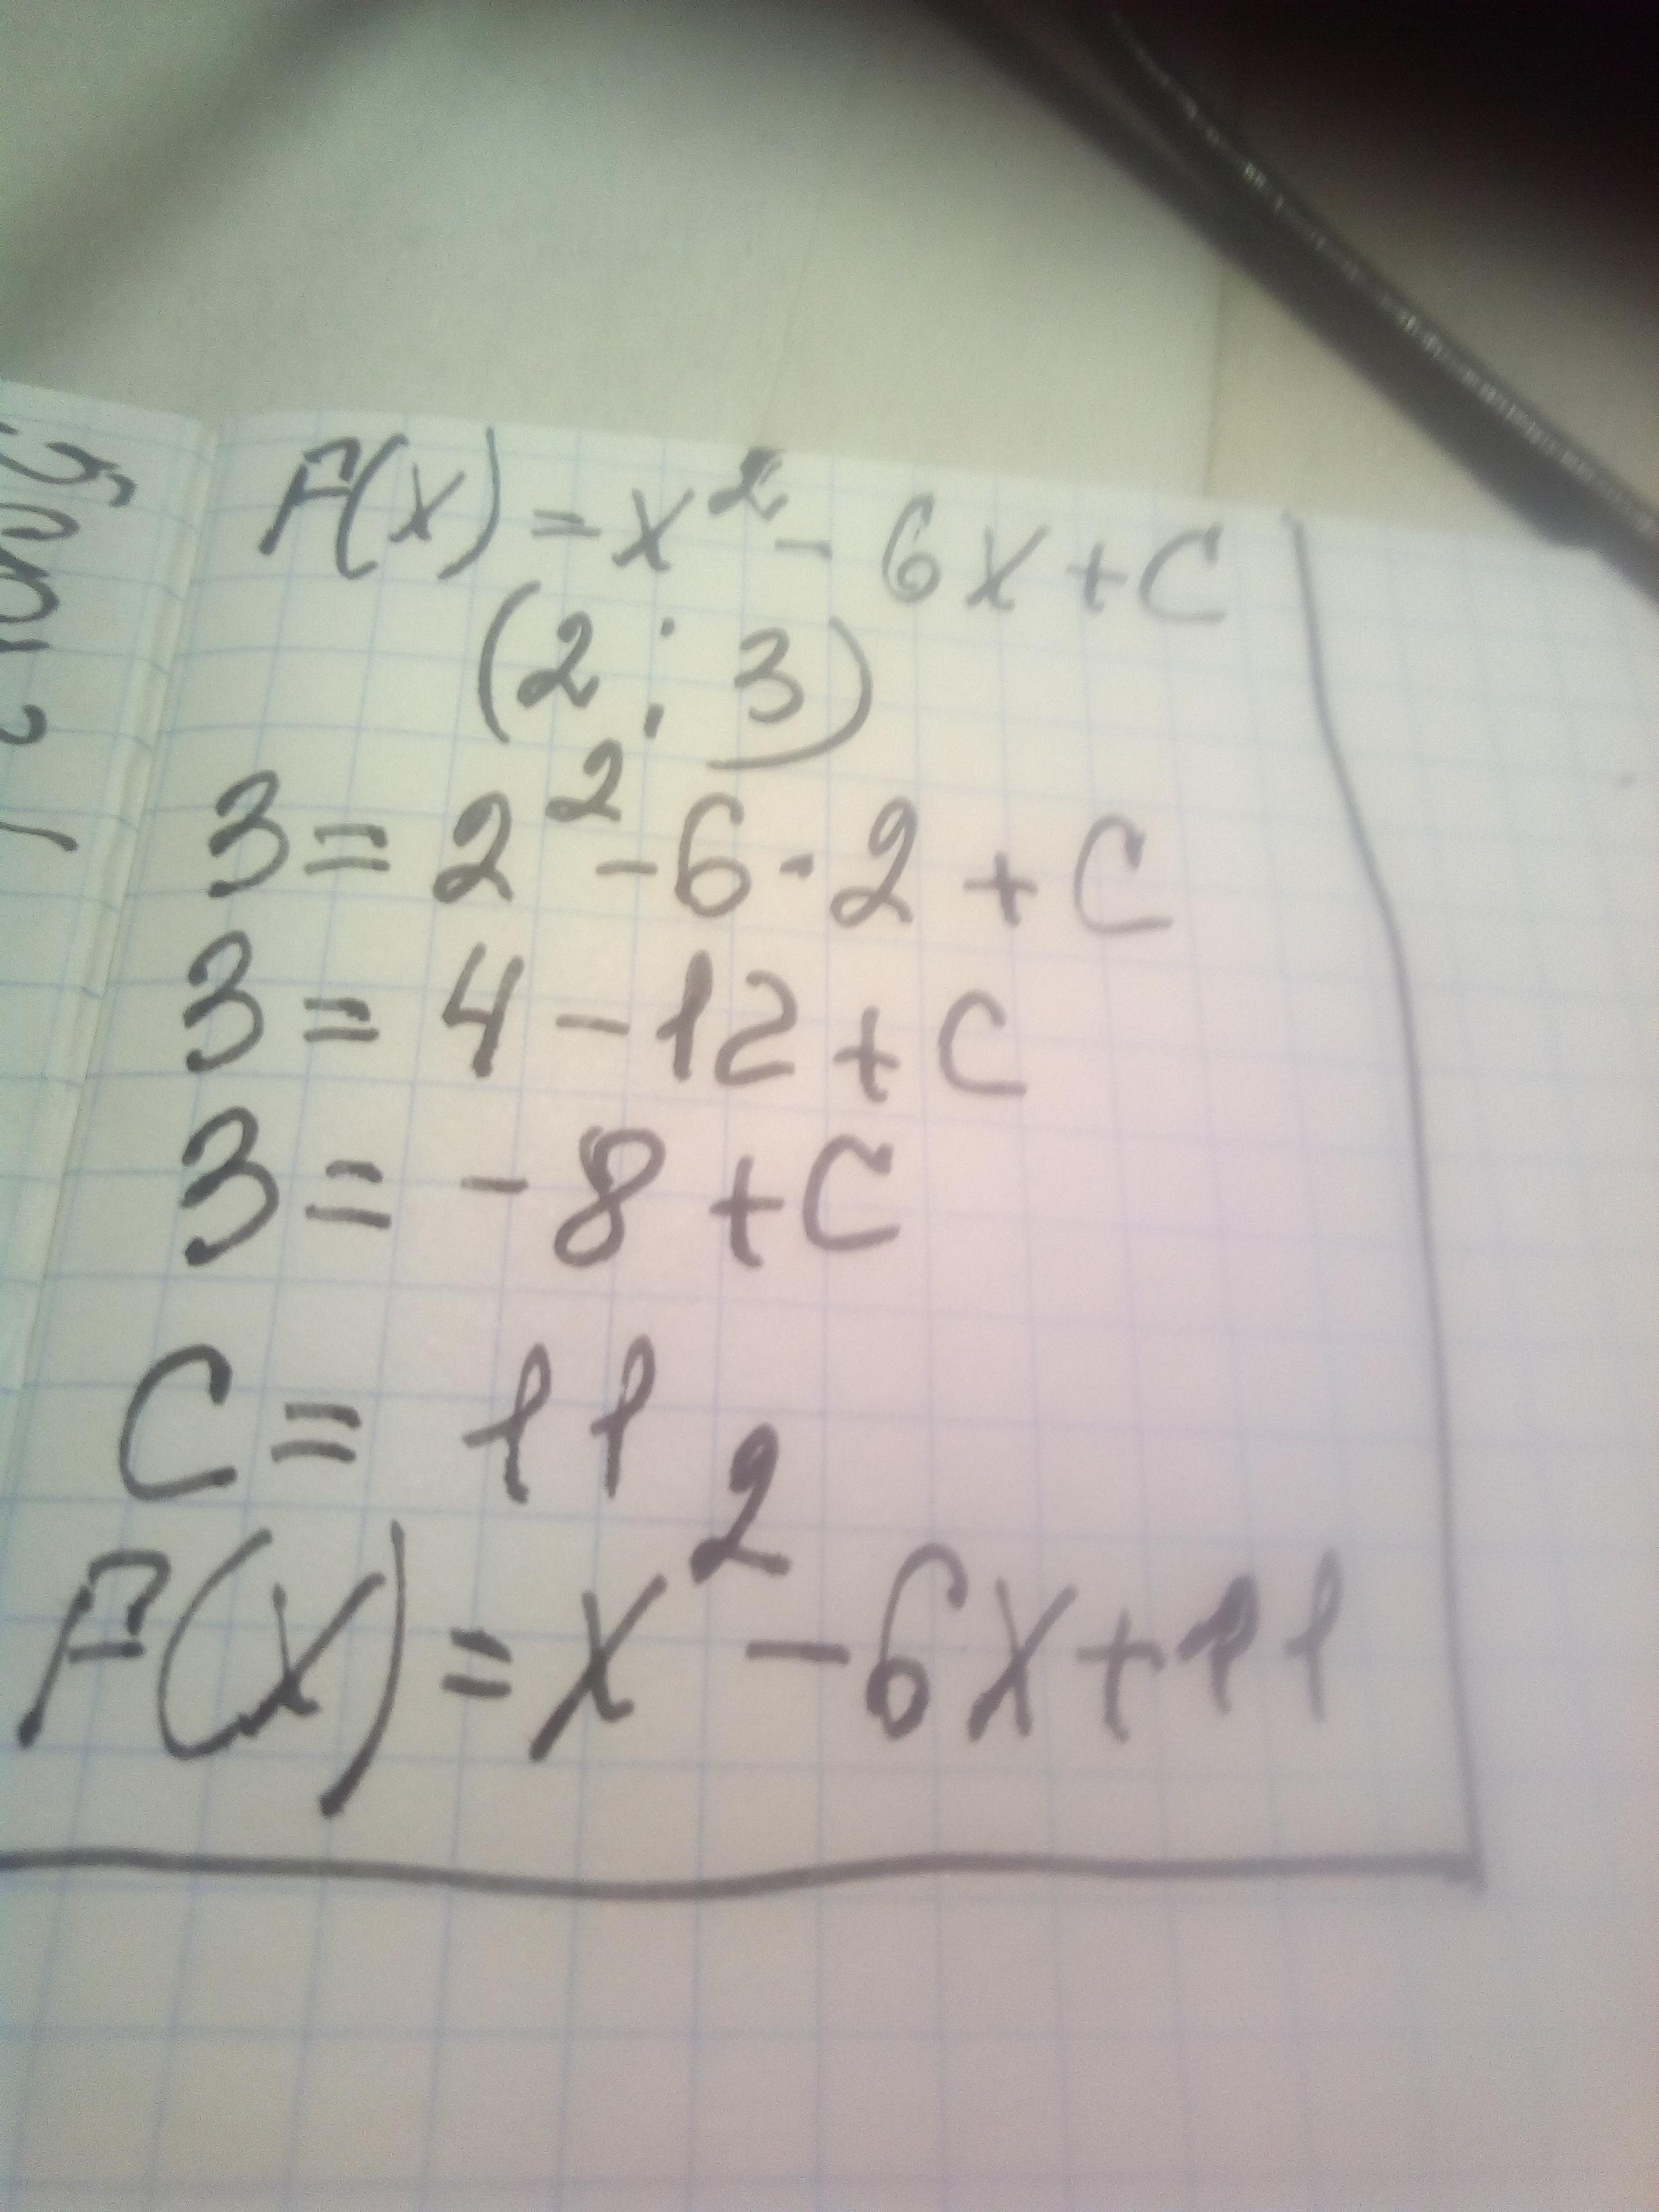 F(x) = x² - 6x + C
(2 ; 3)
3 = 2² - 6 · 2 + C
3 = 4 - 12 + C
3 = - 8 + C
C = 11
F(x) = x² - 6x + 11